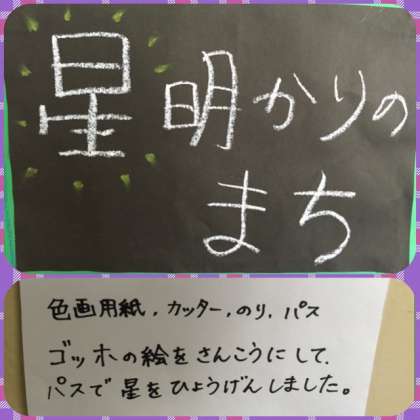 星明かりの
まち
色画用紙，カッター，のり，パス
ゴッホの絵をさんこうにして、
パスで星をひょうげんしました。